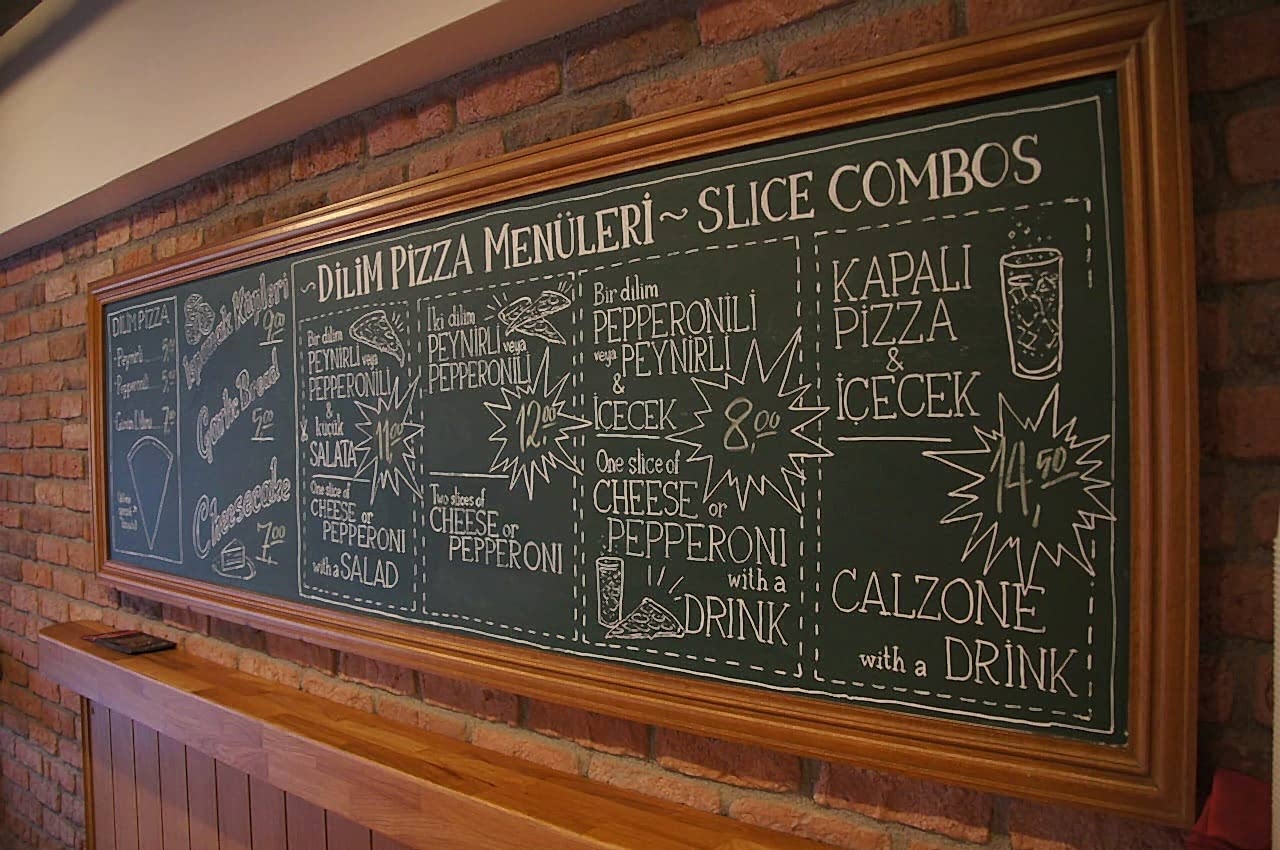 DİLİM PİZZA
Peynirli
Pepperonili
Ispanak Kapları
9.00
Garlic Bread
5.00
Cheesecake
7.00
~DİLİM PİZZA MENÜLERİ~ SLICE COMBOS
Bir dilim
PEYNİRLİ veya
PEPPERONİLİ
&
küçük
SALATA
11.00
One slice of
CHEESE or
PEPPERONI
with a SALAD
İki dilim
PEYNİRLİ veya
PEPPERONİLİ
12.00
Two slices of
CHEESE or
PEPPERONI
Bir dilim
PEPPERONİLİ
veya PEYNİRLİ
&
İÇECEK
8,00
One slice of
CHEESE or
PEPPERONI
with a
DRINK
KAPALI
PİZZA
&
İÇECEK
14,50
CALZONE
with a DRİNK